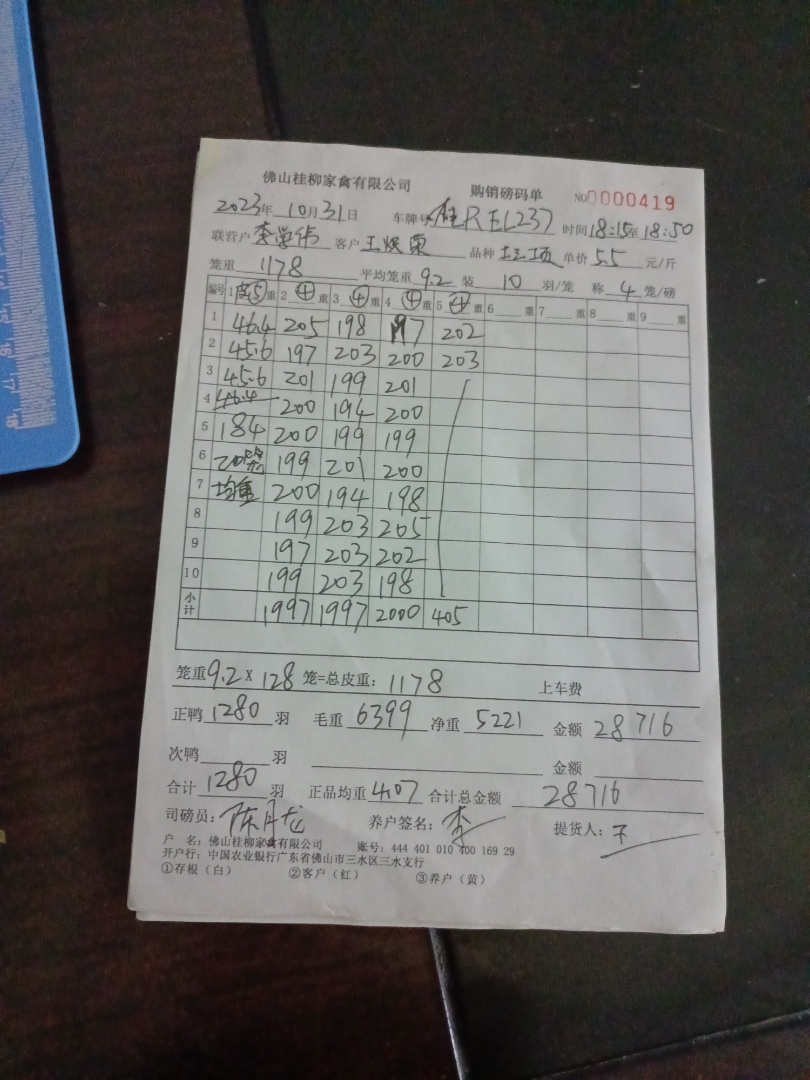 佛山桂柳家禽有限公司 购销磅码单 NO0000419
2023年 10月31日 车牌号 桂REL237 时间18:15至18:50
联营户 李学伟 客户 王焕 品种 土三项 单价 5.5 元/斤
笼重 1178 平均笼重 9.2 装 10 羽/笼 称 4 笼/磅
编号 1 皮⑤ 重 2 ④ 重 3 ④ 重 4 ④ 重 5 ④ 重 6 重 7 重 8 重 9 重
1 46.4 205 198 197 202
2 45.6 197 203 200 203
3 45.6 201 199 201
4 46.4 200 194 200
5 184 200 199 199
6 20笼 199 201 200
7 均重 200 194 198
8 199 203 205
9 197 203 202
10 199 203 198
小计 1997 1997 2000 405
笼重9.2 X 128 笼=总皮重: 1178 上车费
正鸭 1280 羽 毛重 6399 净重 5221 金额 28716
次鸭 羽 金额
合计 1280 羽 正品均重 4.07 合计总金额 28716
司磅员: 陈月龙 养户签名: 李 提货人: 王
户 名: 佛山桂柳家禽有限公司 账号: 444 401 010 400 169 29
开户行: 中国农业银行广东省佛山市三水区三水支行
①存根(白) ②客户(红) ③养户(黄)